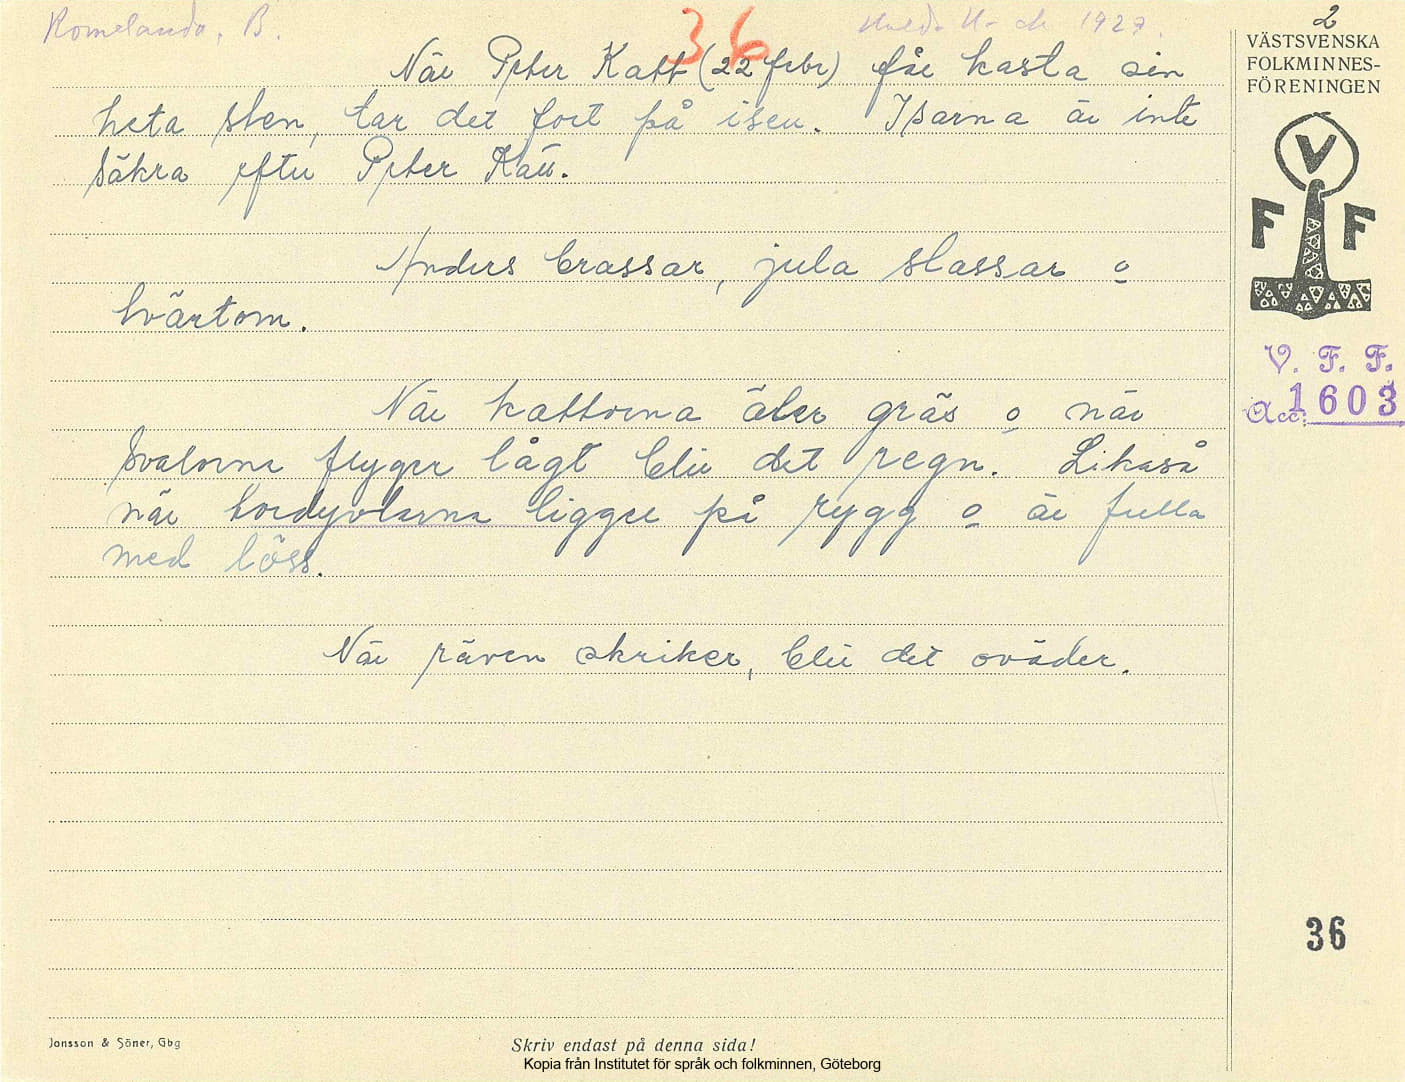 Romelanda, B.
36
1927.
2
VÄSTSVENSKA
FOLKMINNES-
FÖRENINGEN
När Peter Katt (22 febr) får kasta sin
heta sten, tar det fort på isen. Isarna är inte
säkra efter Peter Katt.
Anders brassar, jula slassar o
tvärtom.
När kattorna äter gräs o när
svalorna flyger lågt blir det regn. Likaså
när tordyvlarna ligger på rygg o är fulla
med löss.
När räven skriker, blir det oväder.
V
F F
V. F. F.
Acc. 1603
36
Jonsson & Söner, Gbg
Skriv endast på denna sida!
Kopia från Institutet för språk och folkminnen, Göteborg